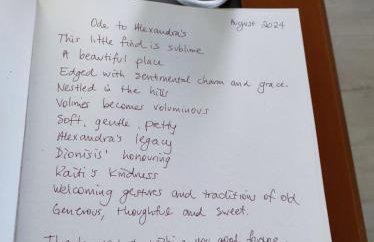 Ode to Alexandra's
August 2024
This little find is sublime
A beautiful place
Edged with sentimental charm and grace.
Nestled in the hills
Volimes becomes voluminous
Soft, gentle, petty
Alexandra's legacy
Dionisis' honouring
Kaiti's kindness
Welcoming gestures and traditions of old
Generous, thoughtful and sweet.
you good